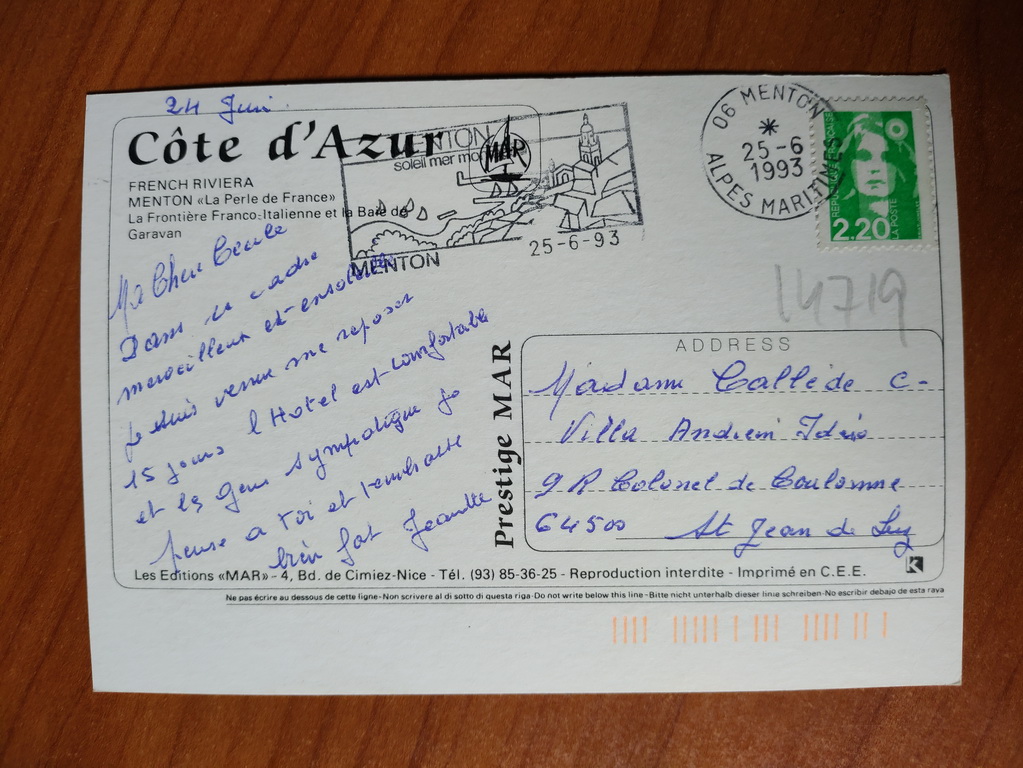 24 Juin.
Côte d'Azur
FRENCH RIVIERA
MENTON «La Perle de France»
La Frontière Franco-Italienne et la Baie de
Garavan
MENTON
soleil mer mo
MAR
MENTON
25-6-93
06 MENTON
*
25-6
1993
ALPES MARITIMES
LA POSTE
2.20
14719
Ma Chere Cecile
Dans ce cadre
merveilleux et ensoleillé
je suis venue me reposer
15 jours l'Hotel est comfortable
et les gens sympatique je
pense a toi et t'embrasse
bien fort Jeannette
Prestige MAR
ADDRESS
Madame Callède C-
Villa
9 R Colonel de Coulomme
64500 St Jean de Luz
Les Editions «MAR» - 4, Bd. de Cimiez-Nice - Tél. (93) 85-36-25 - Reproduction interdite - Imprimé en C.E.E.
K
Ne pas écrire au dessous de cette ligne-Non scrivere al di sotto di questa riga-Do not write below this line-Bitte nicht unterhalb dieser linie schreiben-No escribir debajo de esta raya